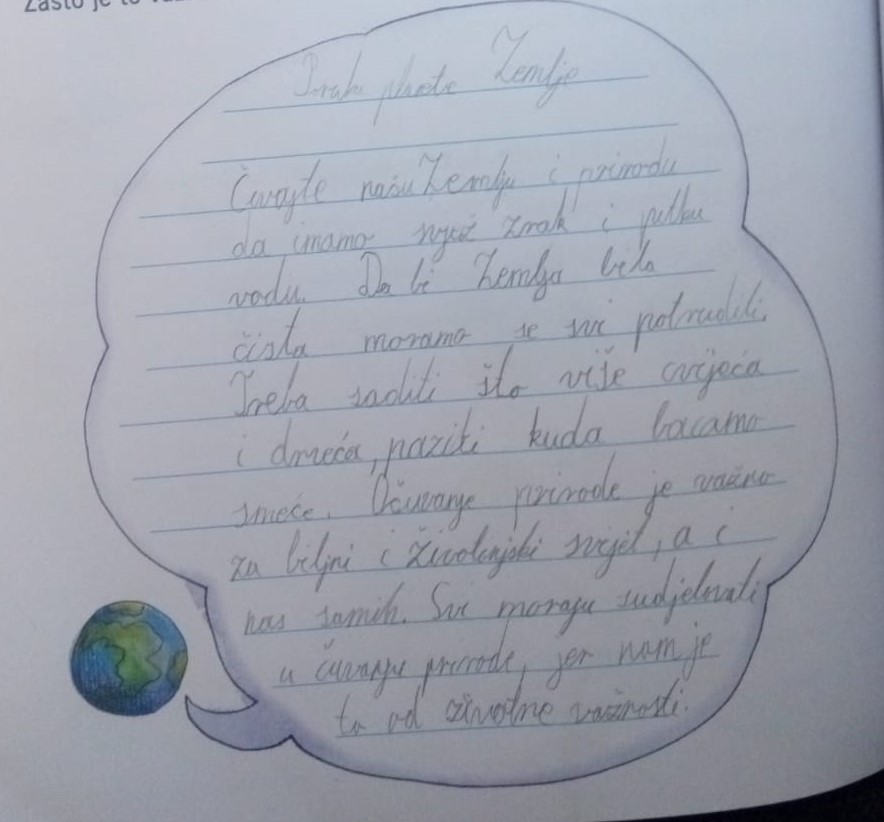 Zašto je to
Zemlje
Čuvajte našu Zemlju i prirodu
da imamo svjež zrak i pitku
vodu. Da bi Zemlja bila
čista moramo se svi potruditi.
Treba saditi što više cvijeća
i drveća, paziti kuda bacamo
smeće. Očuvanje prirode je važno
za biljni i životinjski svijet, a i
nas samih. Svi moraju sudjelovati
u čuvanju prirode, jer nam je
to od životne važnosti.